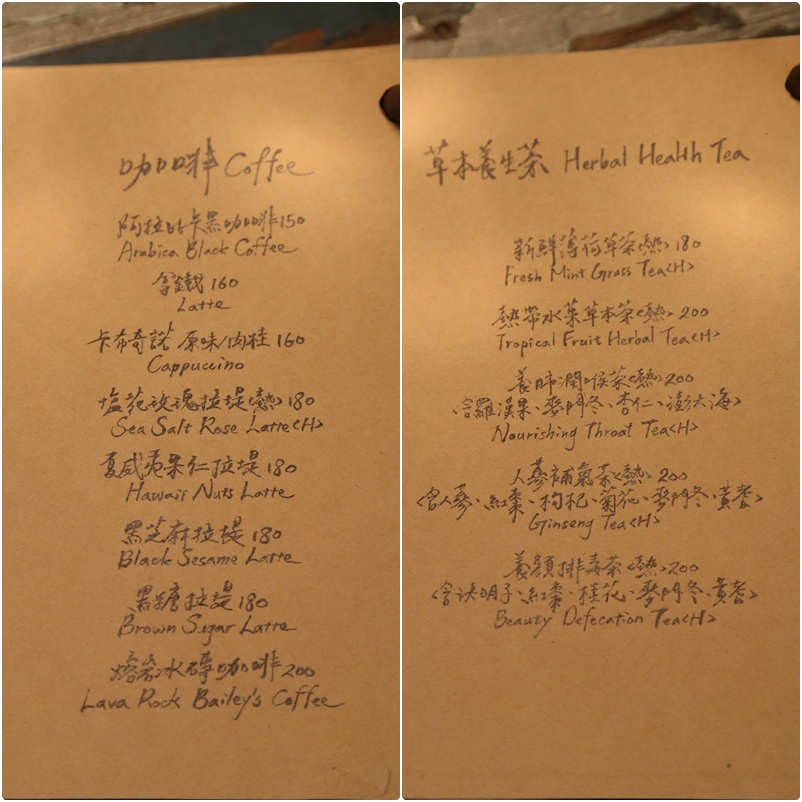 咖啡 Coffee
阿拉比卡黑咖啡 150
Arabica Black Coffee
拿鐵 160
Latte
卡布奇諾 原味/肉桂 160
Cappuccino
塩花玫瑰拉堤<熱> 180
Sea Salt Rose Latte<H>
夏威夷果仁拉堤 180
Hawaii Nuts Latte
黑芝麻拉堤 180
Black Sesame Latte
黑糖拉堤 180
Brown Sugar Latte
熔岩冰磚咖啡 200
Lava Rock Bailey's Coffee
草本養生茶 Herbal Health Tea
新鮮薄荷草茶<熱> 180
Fresh Mint Grass Tea<H>
熱帶水菓草本茶<熱> 200
Tropical Fruit Herbal Tea<H>
養肺潤喉茶<熱> 200
<含羅漢果、麥門冬、杏仁、澎大海>
Nourishing Throat Tea<H>
人蔘補氣茶<熱> 200
<含人蔘、紅棗、枸杞、菊花、麥門冬、黃耆>
Ginseng Tea<H>
養顏排毒茶<熱> 200
<含決明子、紅棗、桂花、麥門冬、黃耆>
Beauty Defecation Tea<H>